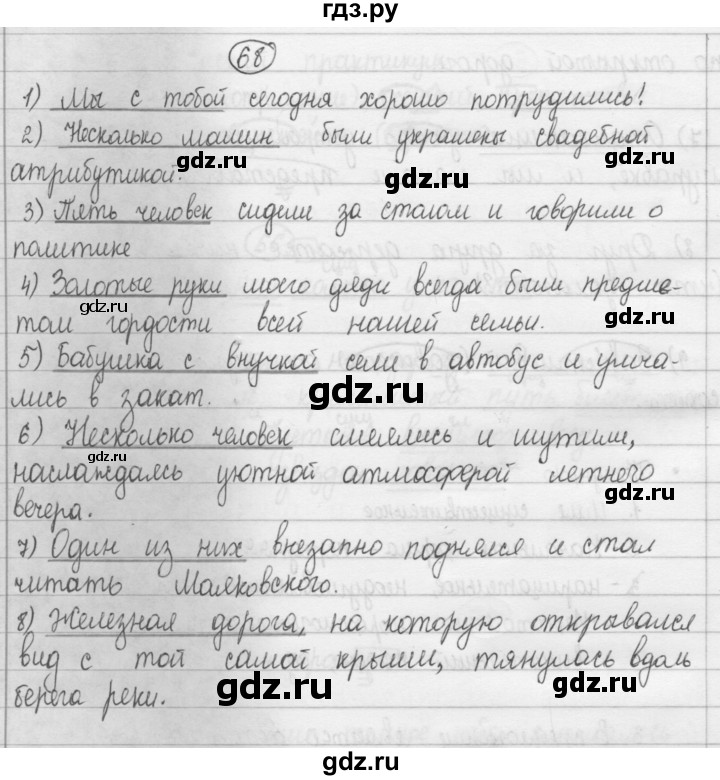 гдз.ру
68
1) Мы с тобой сегодня хорошо потрудились!
2) Несколько машин были украшены свадебной
gdz.ru
атрибутикой.
gdz.ru
3) Пять человек сидели за столом и говорили о
gdz.ru
политике
4) Золотые руки моего дяди всегда были предме-
gdz.ru
gdz.ru
том гордости всей нашей семьи.
5) Бабушка с внучкой сели в автобус и умча-
gdz.ru
лись в закат.
6) Несколько человек смеялись и шутили,
gdz.ru
наслаждаясь уютной атмосферой летнего
gdz.ru
вечера.
7) Один из них внезапно поднялся и стал
gdz.ru
читать Маяковского.
8) Железная дорога, на которую открывался
gdz.ru
вид с той самой крыши, тянулась вдоль
gdz.ru
gdz.ru
берега реки.
gdz.ru